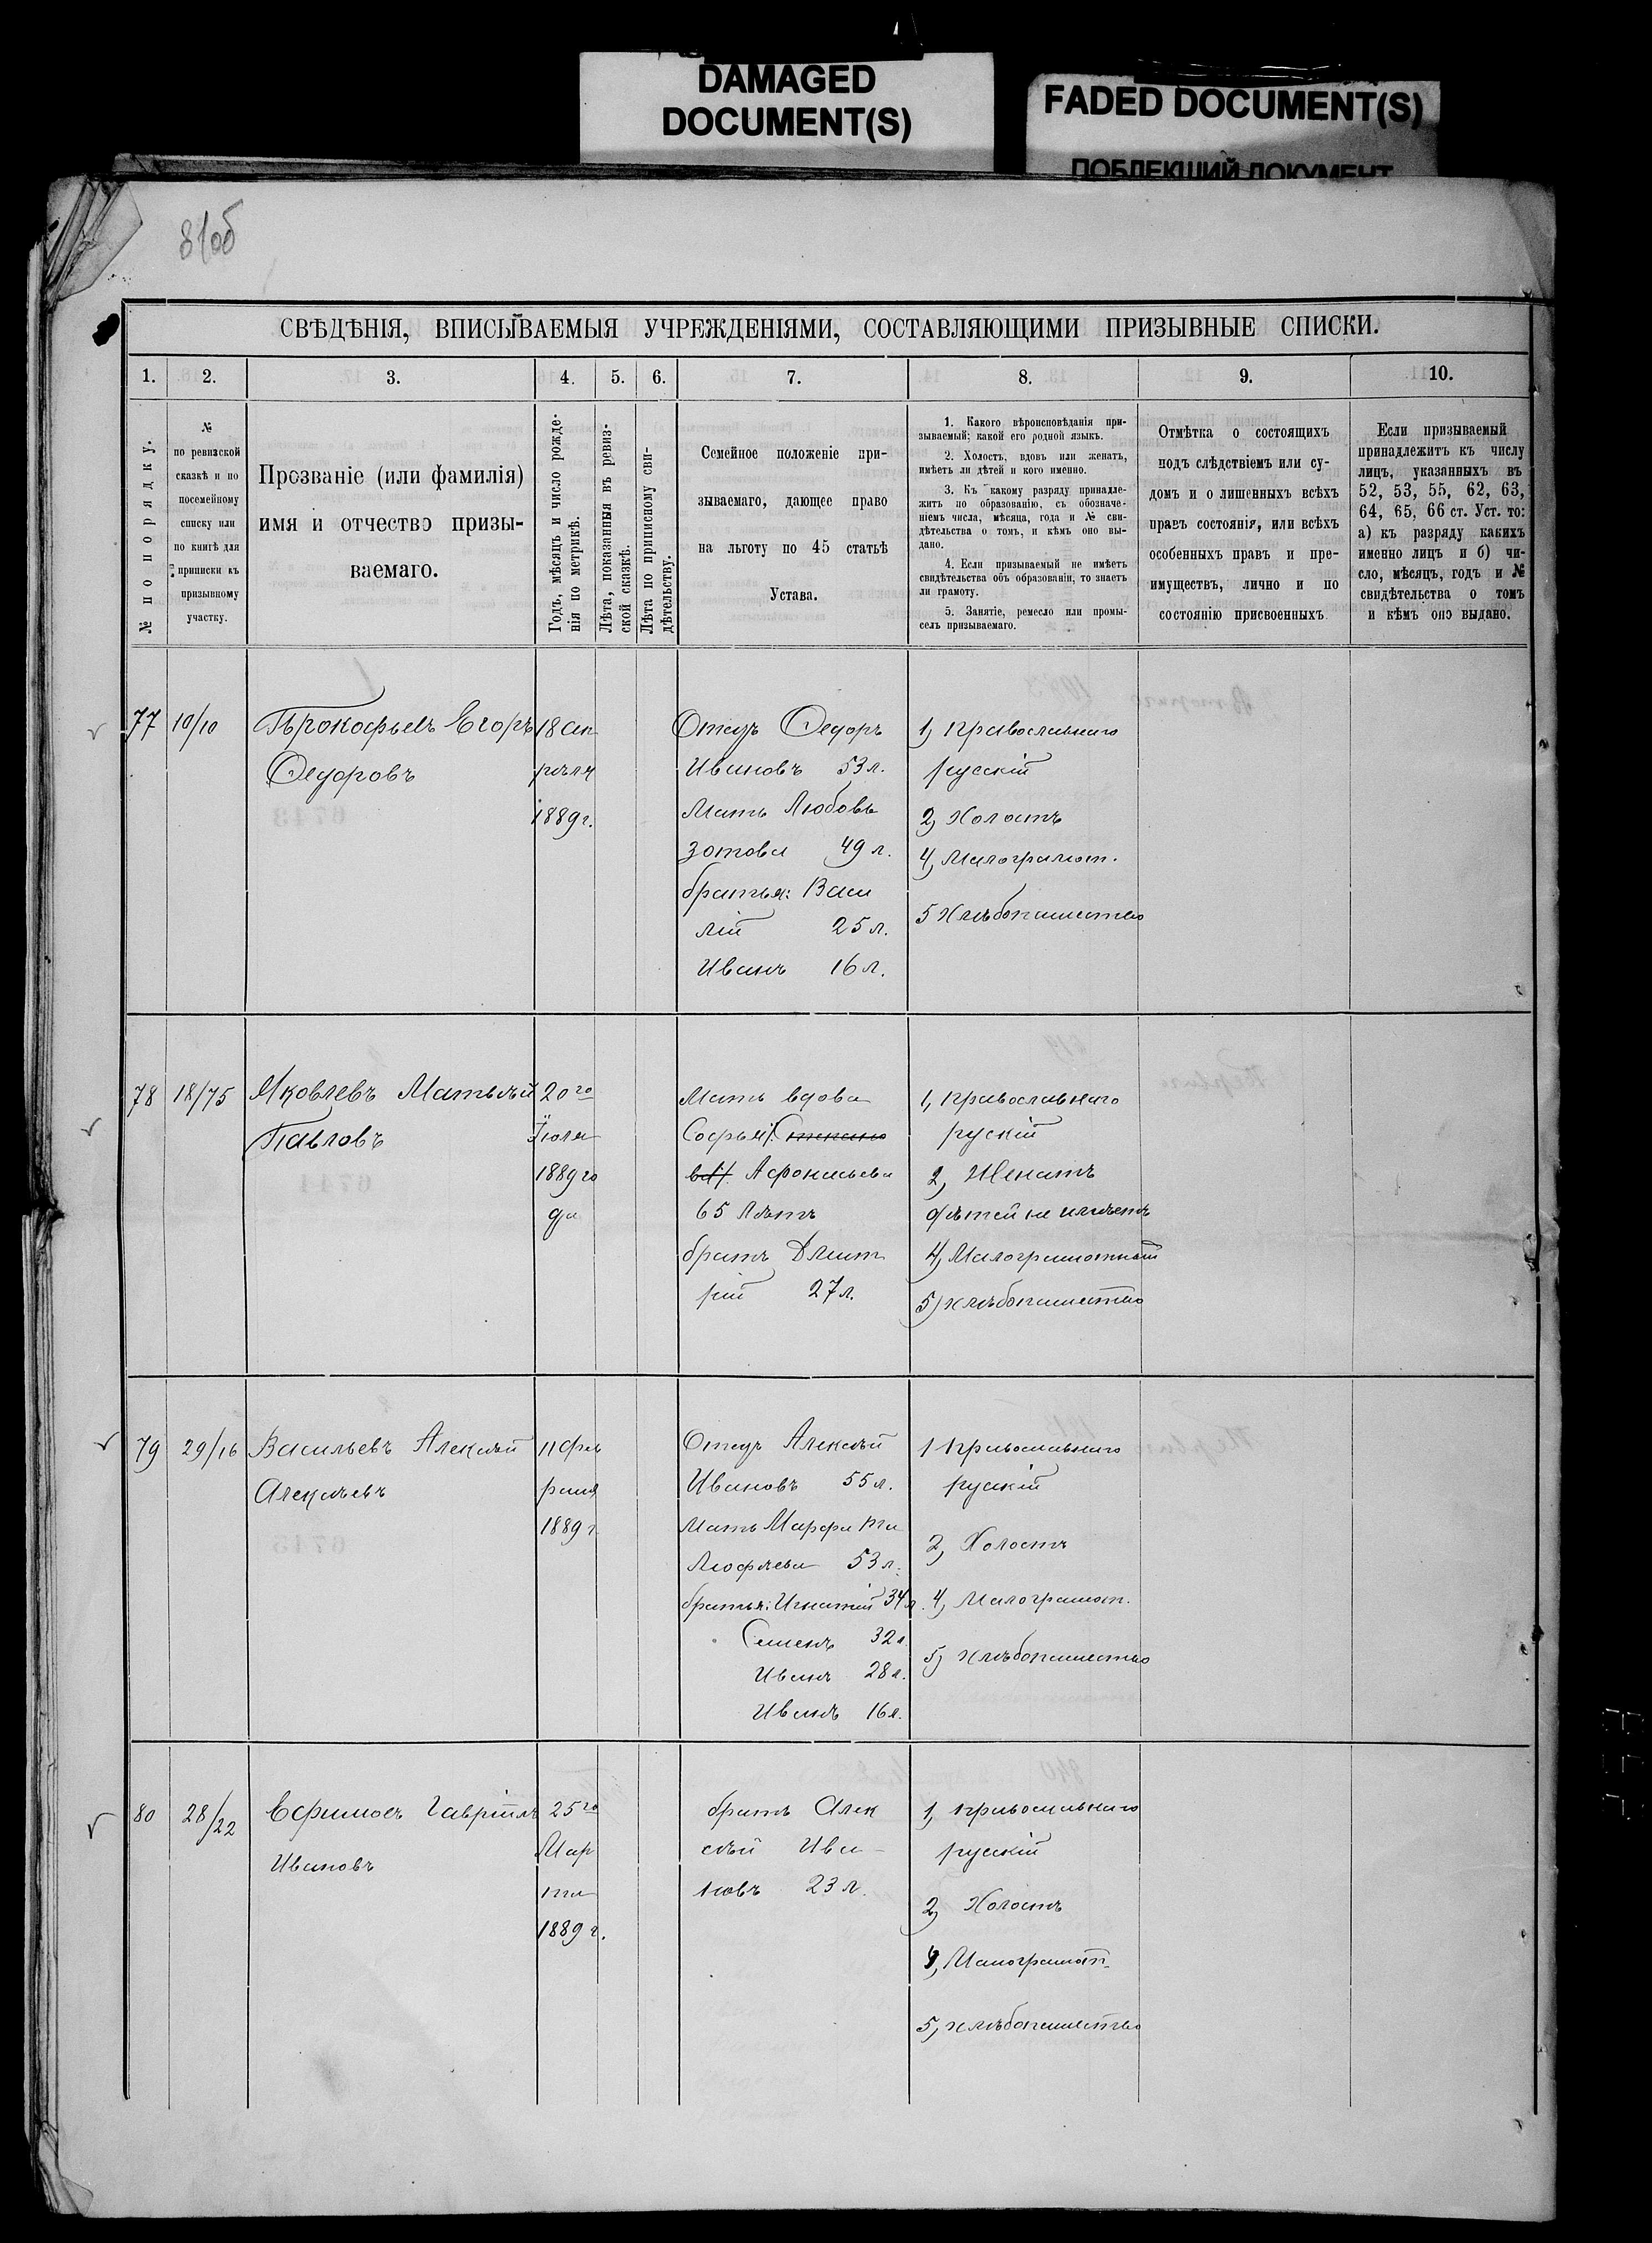 DAMAGED
DOCUMENT(S)
FADED DOCUMENT(S)
ПОБЛЕКШИЙ ДОКУМЕНТ
81об
СВѢДѢНІЯ, ВПИСЫВАЕМЫЯ УЧРЕЖДЕНІЯМИ, СОСТАВЛЯЮЩИМИ ПРИЗЫВНЫЕ СПИСКИ.
1. 2. 3. 4. 5. 6. 7. 8. 9. 10.
№ по порядку.
№
по ревизской
сказкѣ и по
посемейному
списку или
по книгѣ для
приписки къ
призывному
участку.
Прозваніе (или фамилія)
имя и отчество призы-
ваемаго.
Годъ, мѣсяцъ и число рожде-
нія по метрикѣ.
Лѣта, показанныя въ ревиз-
ской сказкѣ.
Лѣта по приписному сви-
дѣтельству.
Семейное положеніе при-
зываемаго, дающее право
на льготу по 45 статьѣ
Устава.
1. Какого вѣроисповѣданія при-
зываемый; какой его родной языкъ.
2. Холостъ, вдовъ или женатъ,
имѣетъ ли дѣтей и кого именно.
3. Къ какому разряду принадле-
житъ по образованію, съ обозначе-
ніемъ числа, мѣсяца, года и № сви-
дѣтельства о томъ, и кѣмъ оно вы-
дано.
4. Если призываемый не имѣетъ
свидѣтельства объ образованіи, то знаетъ
ли грамоту.
5. Занятіе, ремесло или промы-
селъ призываемаго.
Отмѣтка о состоящихъ
подъ слѣдствіемъ или су-
домъ и о лишенныхъ всѣхъ
правъ состоянія, или всѣхъ
особенныхъ правъ и пре-
имуществъ, лично и по
состоянію присвоенныхъ
Если призываемый
принадлежитъ къ числу
лицъ, указанныхъ въ
52, 53, 55, 62, 63,
64, 65, 66 ст. Уст. то:
а) къ разряду какихъ
именно лицъ и б) чи-
сло, мѣсяцъ, годъ и №
свидѣтельства о томъ
и кѣмъ оно выдано.
77 10/10 Прокофьевъ Егоръ
Ѳедоровъ
18 ап
рѣля
1889 г.
Отецъ Ѳедоръ
Ивановъ 53 л.
Мать Любовь
Зотова 49 л.
братья: Васи
лій 25 л.
Иванъ 16 л.
1, православнаго
русскій
2, Холостъ
4, Малограмот.
5 Хлѣбопашество
78 18/75 Яковлевъ Матвѣй
Павловъ
20го
Іюля
1889 го
да
Мать вдова
Софья /: Степано
ва /: Афонасьева
65 лѣтъ
братъ Дмит
рій 27 л.
1, православнаго
рускій
2, Женатъ
дѣтей не имѣетъ
4, Малограмотный
5) хлѣбопашество
79 29/16 Васильевъ Алексѣй
Алексѣевъ
11 фев
раля
1889 г
Отецъ Алексѣй
Ивановъ 55 л.
Мать Марфа Ти
мофѣева 53 л.
братья: Игнатій 34 л.
Семенъ 32 л.
Иванъ 28 л.
Иванъ 16 л.
1 Православнаго
рускій
2, Холостъ
4, Малограмот.
5) хлѣбопашество
80 28/22 Ефимовъ Гавріилъ
Ивановъ
25го
Мар
та
1889 г.
братъ Алек
сѣй Ива-
новъ 23 л.
1, православнаго
русскій
2, Холостъ
4, Малограмот.
5, хлѣбопашество